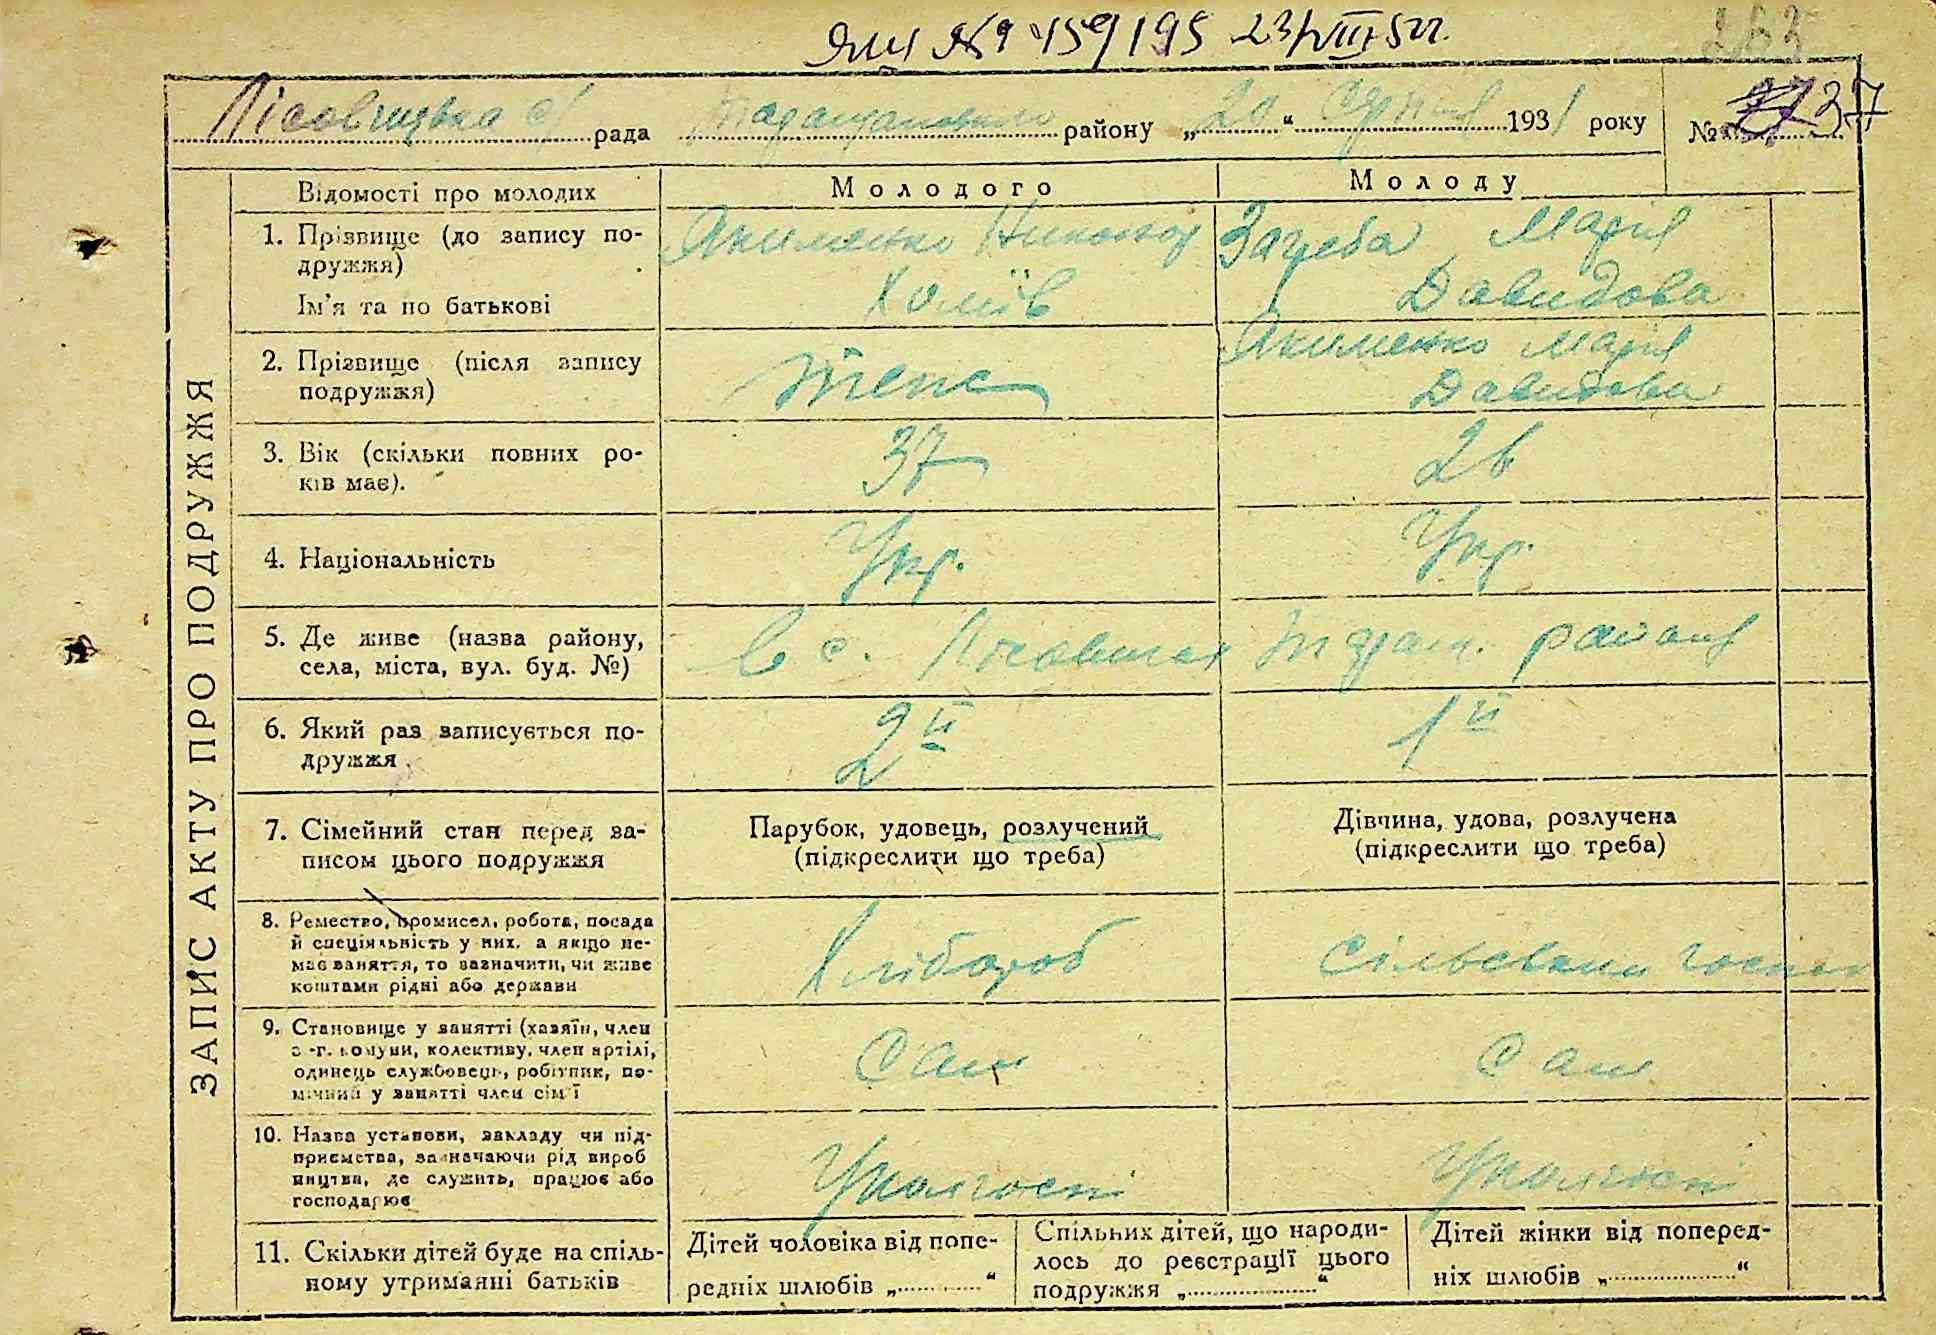 ЯМЧ № 459195 23/VIII 57г.
263
Лісовицька с/рада Таращанського району „20“ Серпня 1931 року № 37
ЗАПИС АКТУ ПРО ПОДРУЖЖЯ
Відомості про молодих Молодого Молоду
1. Прізвище (до запису по-
дружжя)
Ім'я та по батькові
Якименко Никонор
Хомів
Загреба Марія
Давидова
2. Прізвище (після запису
подружжя)
теж
Якименко Марія
Давидова
3. Вік (скільки повних ро-
ків має).
37
26
4. Національність
Укр.
Укр.
5. Де живе (назва району,
села, міста, вул. буд. №)
в с. Лісовичах Таращ. району
6. Який раз записується по-
дружжя
2й
1й
7. Сімейний стан перед за-
писом цього подружжя
Парубок, удовець, розлучений
(підкреслити що треба)
Дівчина, удова, розлучена
(підкреслити що треба)
8. Ремество, промисел, робота, посада
й спеціяльність у них, а якщо не-
має заняття, то зазначити, чи живе
коштами рідні або держави
Хлібороб
Сільське госпо
9. Становище у занятті (хазяїн, член
с.-г. комуни, колективу, член артілі,
одинець службовець, робітник, по-
мічний у занятті член сім'ї
Сам
Сам
10. Назва установи, закладу чи під-
приємства, зазначаючи рід вироб
ництва, де служить, працює або
господарює
11. Скільки дітей буде на спіль-
ному утриманні батьків
Дітей чоловіка від попе-
редніх шлюбів „ “
Спільних дітей, що народи-
лось до реєстрації цього
подружжя „ “
Дітей жінки від поперед-
ніх шлюбів „ “